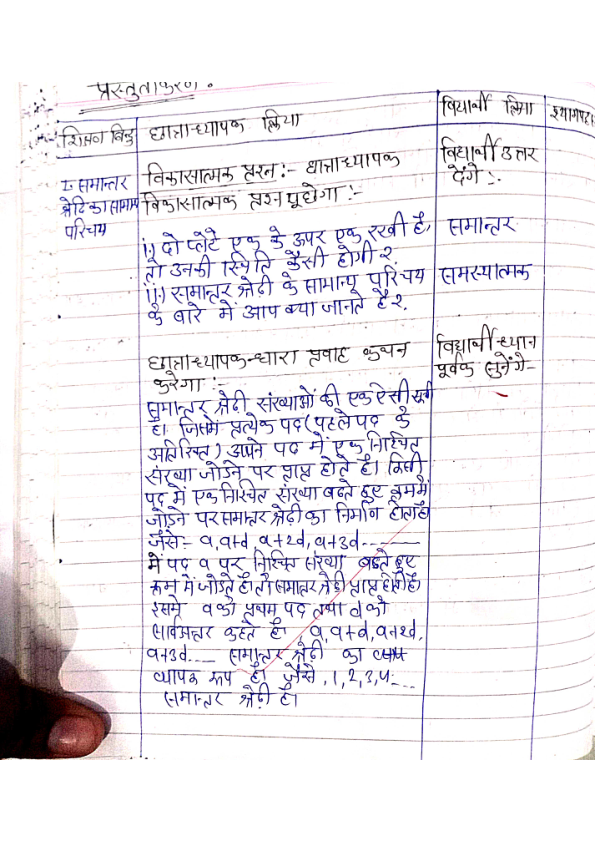 प्रस्तुतीकरण :
शिक्षण बिंदु
छात्राध्यापक क्रिया
विद्यार्थी क्रिया
श्यामपट्ट
1. समान्तर
श्रेढि का सामान्य
परिचय
विकासात्मक प्रश्न :- छात्राध्यापक
विकासात्मक प्रश्न पूछेगा :-
विद्यार्थी उत्तर
देंगे :-
i) दो प्लेटे एक के ऊपर एक रखी है,
तो उनकी स्थिति कैसी होगी ?.
समान्तर
ii) समान्तर श्रेढ़ी के सामान्य परिचय
के बारे में आप क्या जानते है ?.
समस्यात्मक
छात्राध्यापक द्वारा प्रवाह कथन
करेगा :-
विद्यार्थी ध्यान
पूर्वक सुनेंगे-
समान्तर श्रेढ़ी संख्याओं की एक ऐसी सूची
है। जिसमें प्रत्येक पद (पहले पद के
अतिरिक्त) अपने पद में एक निश्चित
संख्या जोडने पर प्राप्त होते है। किसी
पद में एक निश्चित संख्या बढते हुए क्रम में
जोड़ने पर समान्तर श्रेढ़ी का निर्माण होता है।
जैसे:- a, a+d, a+2d, a+3d........
में पद a पर निश्चित संख्या बढते हुए
क्रम में जोडते है तो समान्तर श्रेढ़ी प्राप्त होती है।
इसमे a को प्रथम पद तथा d को
सार्वअन्तर कहते है। a, a+d, a+2d,
a+3d.... समान्तर श्रेढ़ी का
व्यापक रूप है। जैसे, 1, 2, 3, 4...
समान्तर श्रेढ़ी है।